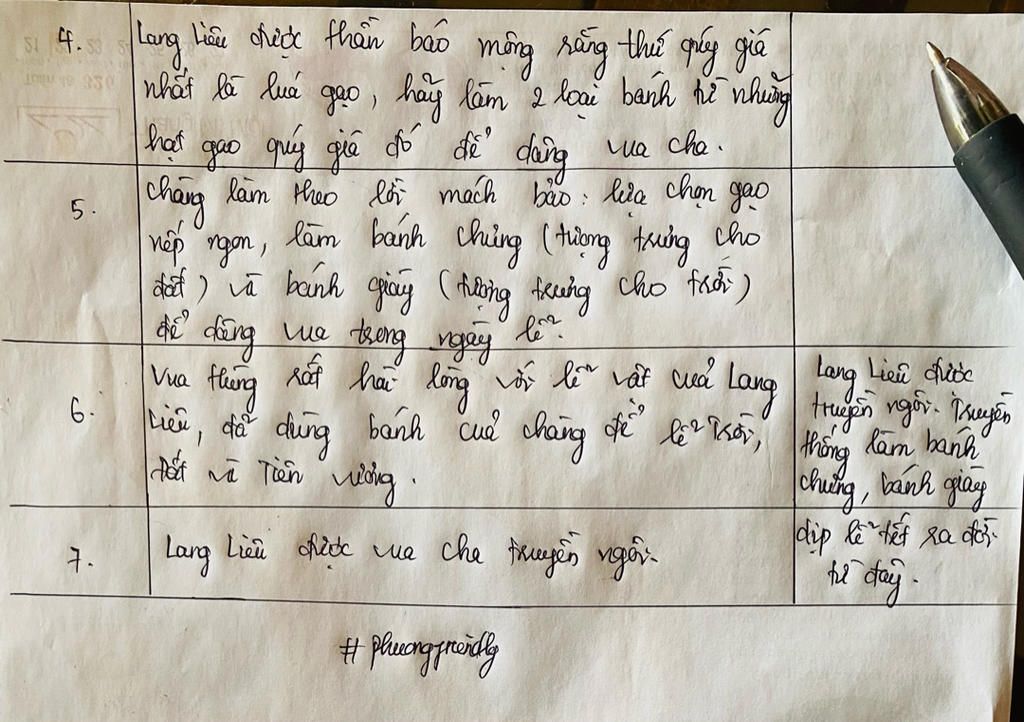 4.
Lang Liêu được thần báo mộng rằng thứ quý giá
nhất là lúa gạo, hãy làm 2 loại bánh từ những
hạt gạo quý giá đó để dâng vua cha.
5.
Chàng làm theo lời mách bảo: lựa chọn gạo
nếp ngon, làm bánh chưng (tượng trưng cho
đất) và bánh giày (tượng trưng cho trời)
để dâng vua trong ngày lễ.
6.
Vua Hùng rất hài lòng với lễ vật của Lang
Liêu, đã dùng bánh của chàng để lễ Trời,
Đất và Tiên vương.
Lang Liêu được
truyền ngôi. Truyền
thống làm bánh
chưng, bánh giày
7.
Lang Liêu được vua cha truyền ngôi.
dịp lễ tết ra đời
từ đây.
# phuongfriendly